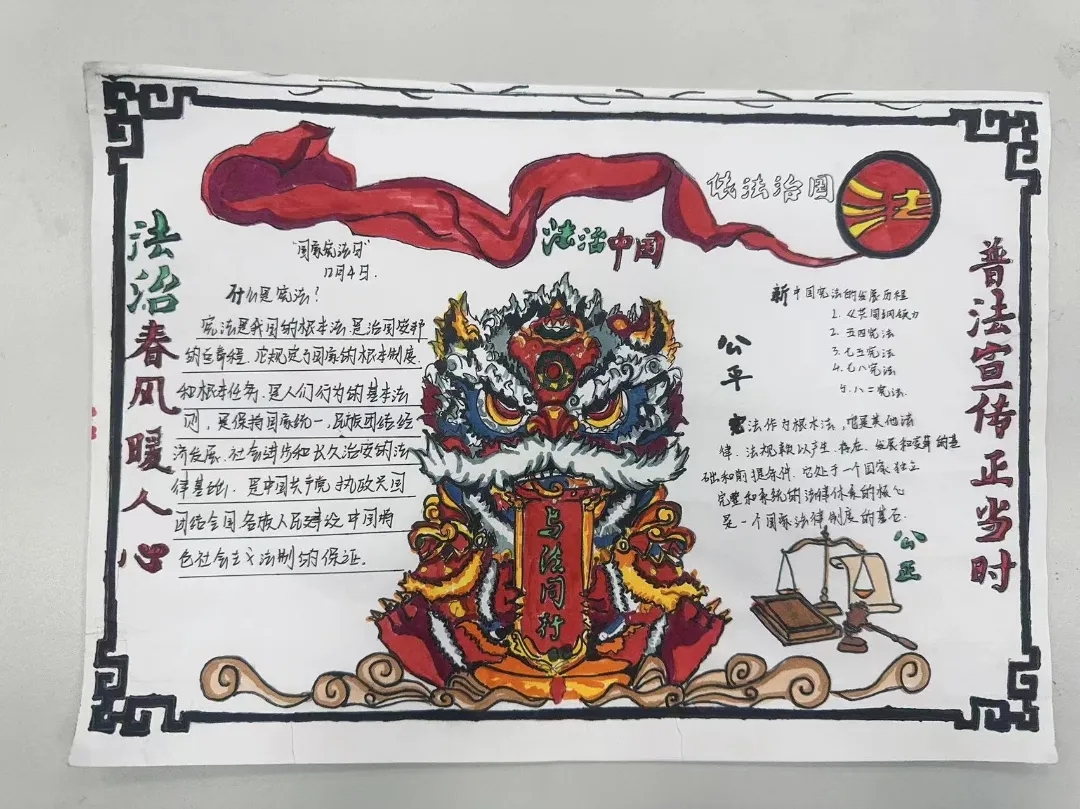 法治春风暖人心
依法治国
法
法治中国
"国家宪法日"
12月4日.
什么是宪法?
宪法是我国的根本法.是治国安邦
的总章程.它规定了国家的根本制度
和根本任务.是人们行为的基本法
则,是保持国家统一、民族团结经
济发展.社会进步和长久治安的法
律基础.是中国共产党执政兴国
团结全国各族人民建设中国特
色社会主义法制的保证.
与法同行
公平
新中国宪法的发展历程
1.《共同纲领》
2.五四宪法
3.七五宪法
4.七八宪法
5.八二宪法.
宪法作为根本法,是其他法
律.法规赖以产生.存在.发展和变更的基
础和前提条件.它处于一个国家独立
完整和系统的法律体系的核心
是一个国家法律制度的基石.
公正
普法宣传正当时